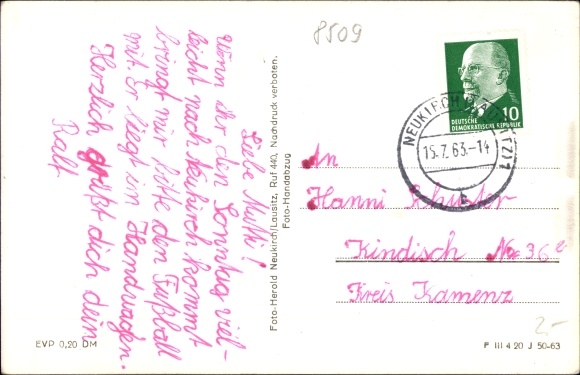 8509
Liebe Mutti!
Wenn ihr den Sonntag viel-
leicht nach Neukirch kommt
bringt mir bitte den Fußball
mit er liegt im Handwagen.
Herzlich grüßt dich dein
Ralf
Foto-Herold Neukirch/Lausitz, Ruf 440, Nachdruck verboten.
Foto-Handabzug
NEUKIRCH (LAUSITZ) 1
15.7.63.-14
b
10
DEUTSCHE
DEMOKRATISCHE REPUBLIK
An
Hanni Schuster
Kindisch No 36
Kreis Kamenz
2,-
EVP 0,20 DM
P III 4 20 J 50-63